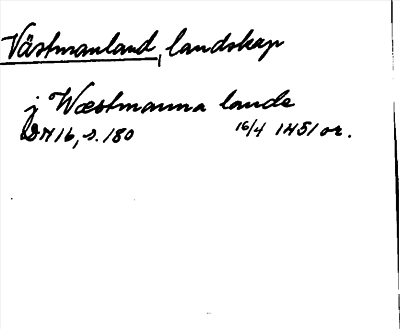 Västmanland, landskap
j Wæstmanna lande
DN 16, s. 180 16/4 1451 or.